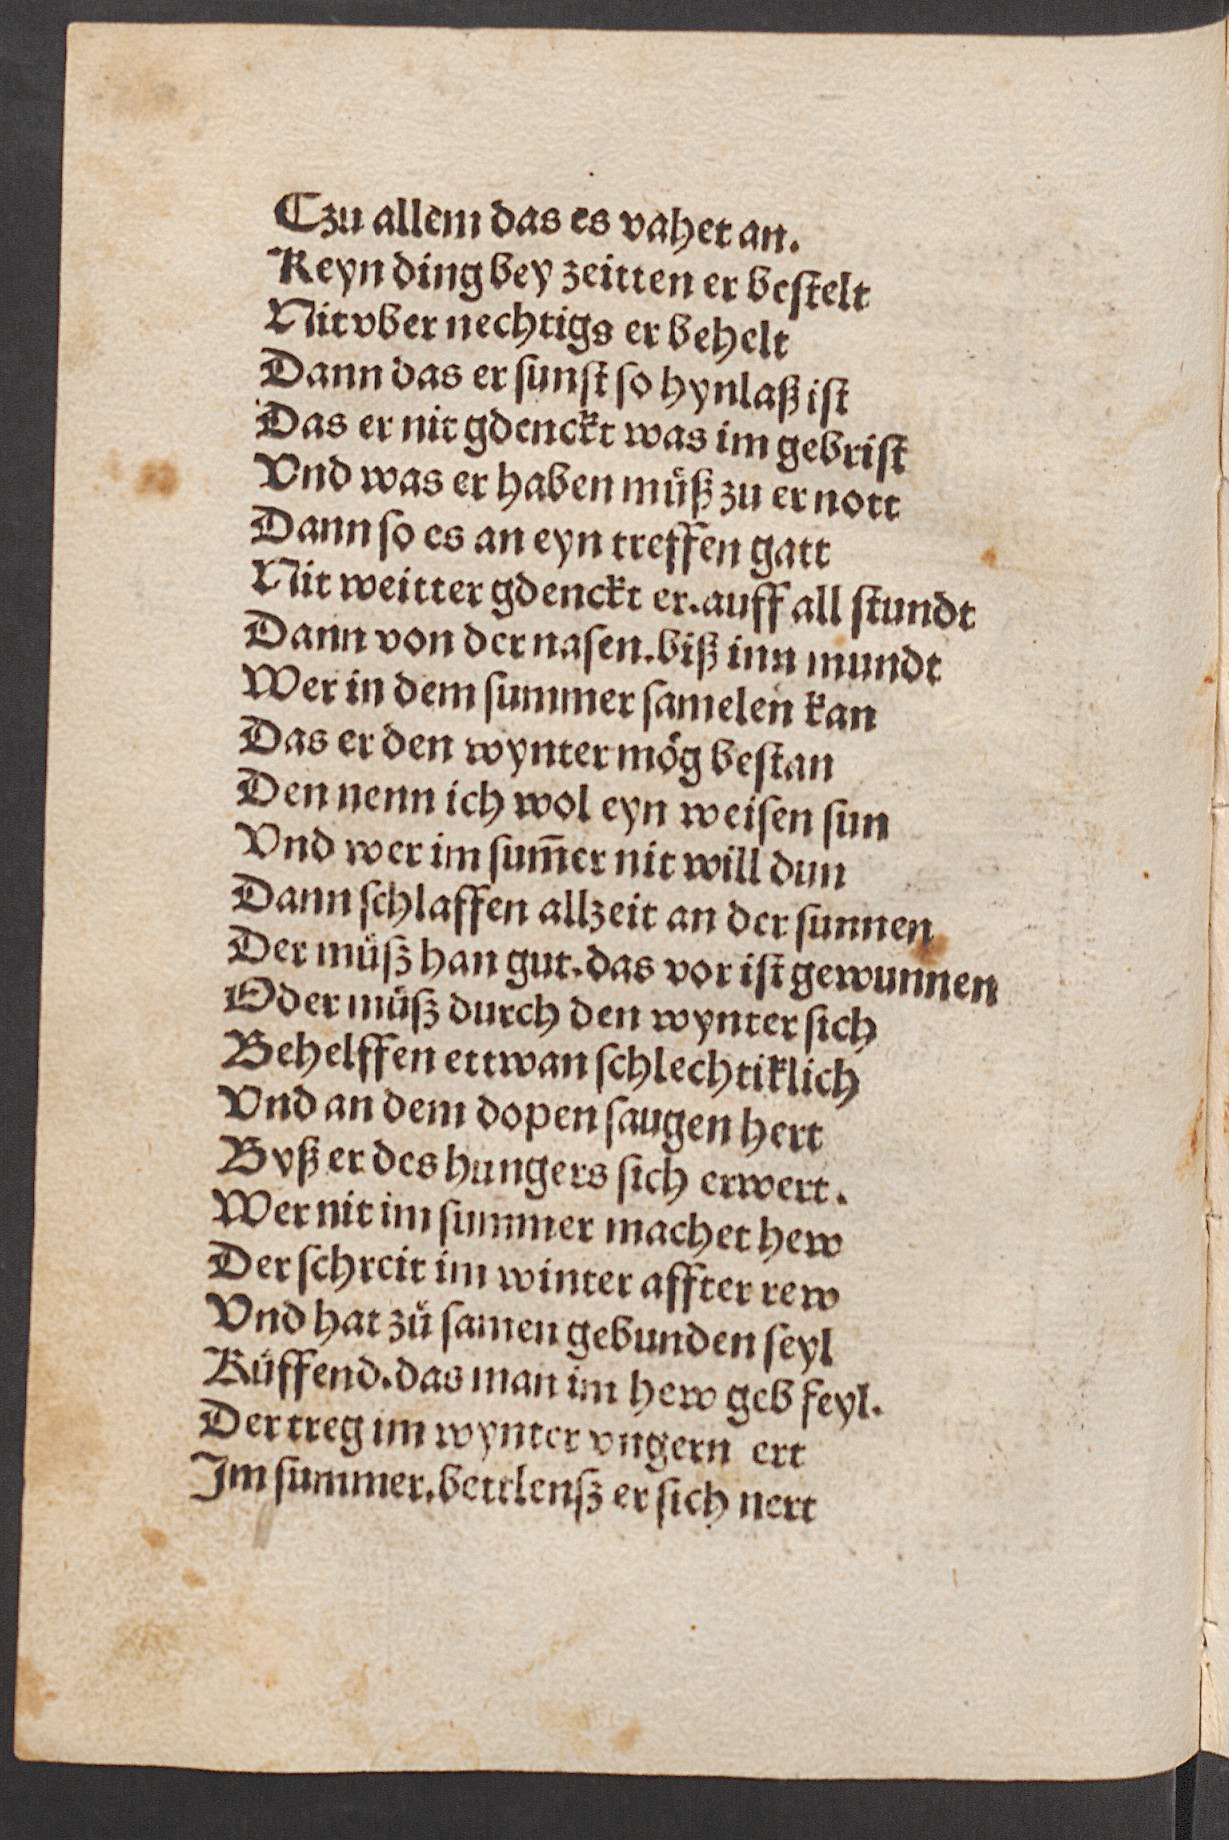 Czu allem das es vahet an.
Keyn ding bey zeitten er beſtelt
Nit vber nechtigs er behelt
Dann das er ſunſt ſo hynlaß iſt
Das er nit gdenckt was im gebriſt
Vnd was er haben müß zu er nott
Dann ſo es an eyn treffen gatt
Nit weitter gdenckt er. auff all ſtundt
Dann von der naſen. biß inn mundt
Wer in dem ſummer ſamelen kan
Das er den wynter mög beſtan
Den nenn ich wol eyn weiſen ſun
Vnd wer im ſum̄er nit will dun
Dann ſchlaffen allzeit an der ſunnen
Der müſz han gut. das vor iſt gewunnen
Oder müſz durch den wynter ſich
Behelffen ettwan ſchlechtiklich
Vnd an dem dopen ſaugen hert
Byß er des hungers ſich erwert.
Wer nit im ſummer machet hew
Der ſchreit im winter affter rew
Vnd hat zů ſamen gebunden ſeyl
Rüffend. das man im hew geb feyl.
Der treg im wynter vngern ert
Im ſummer. bettlenſz er ſich nert